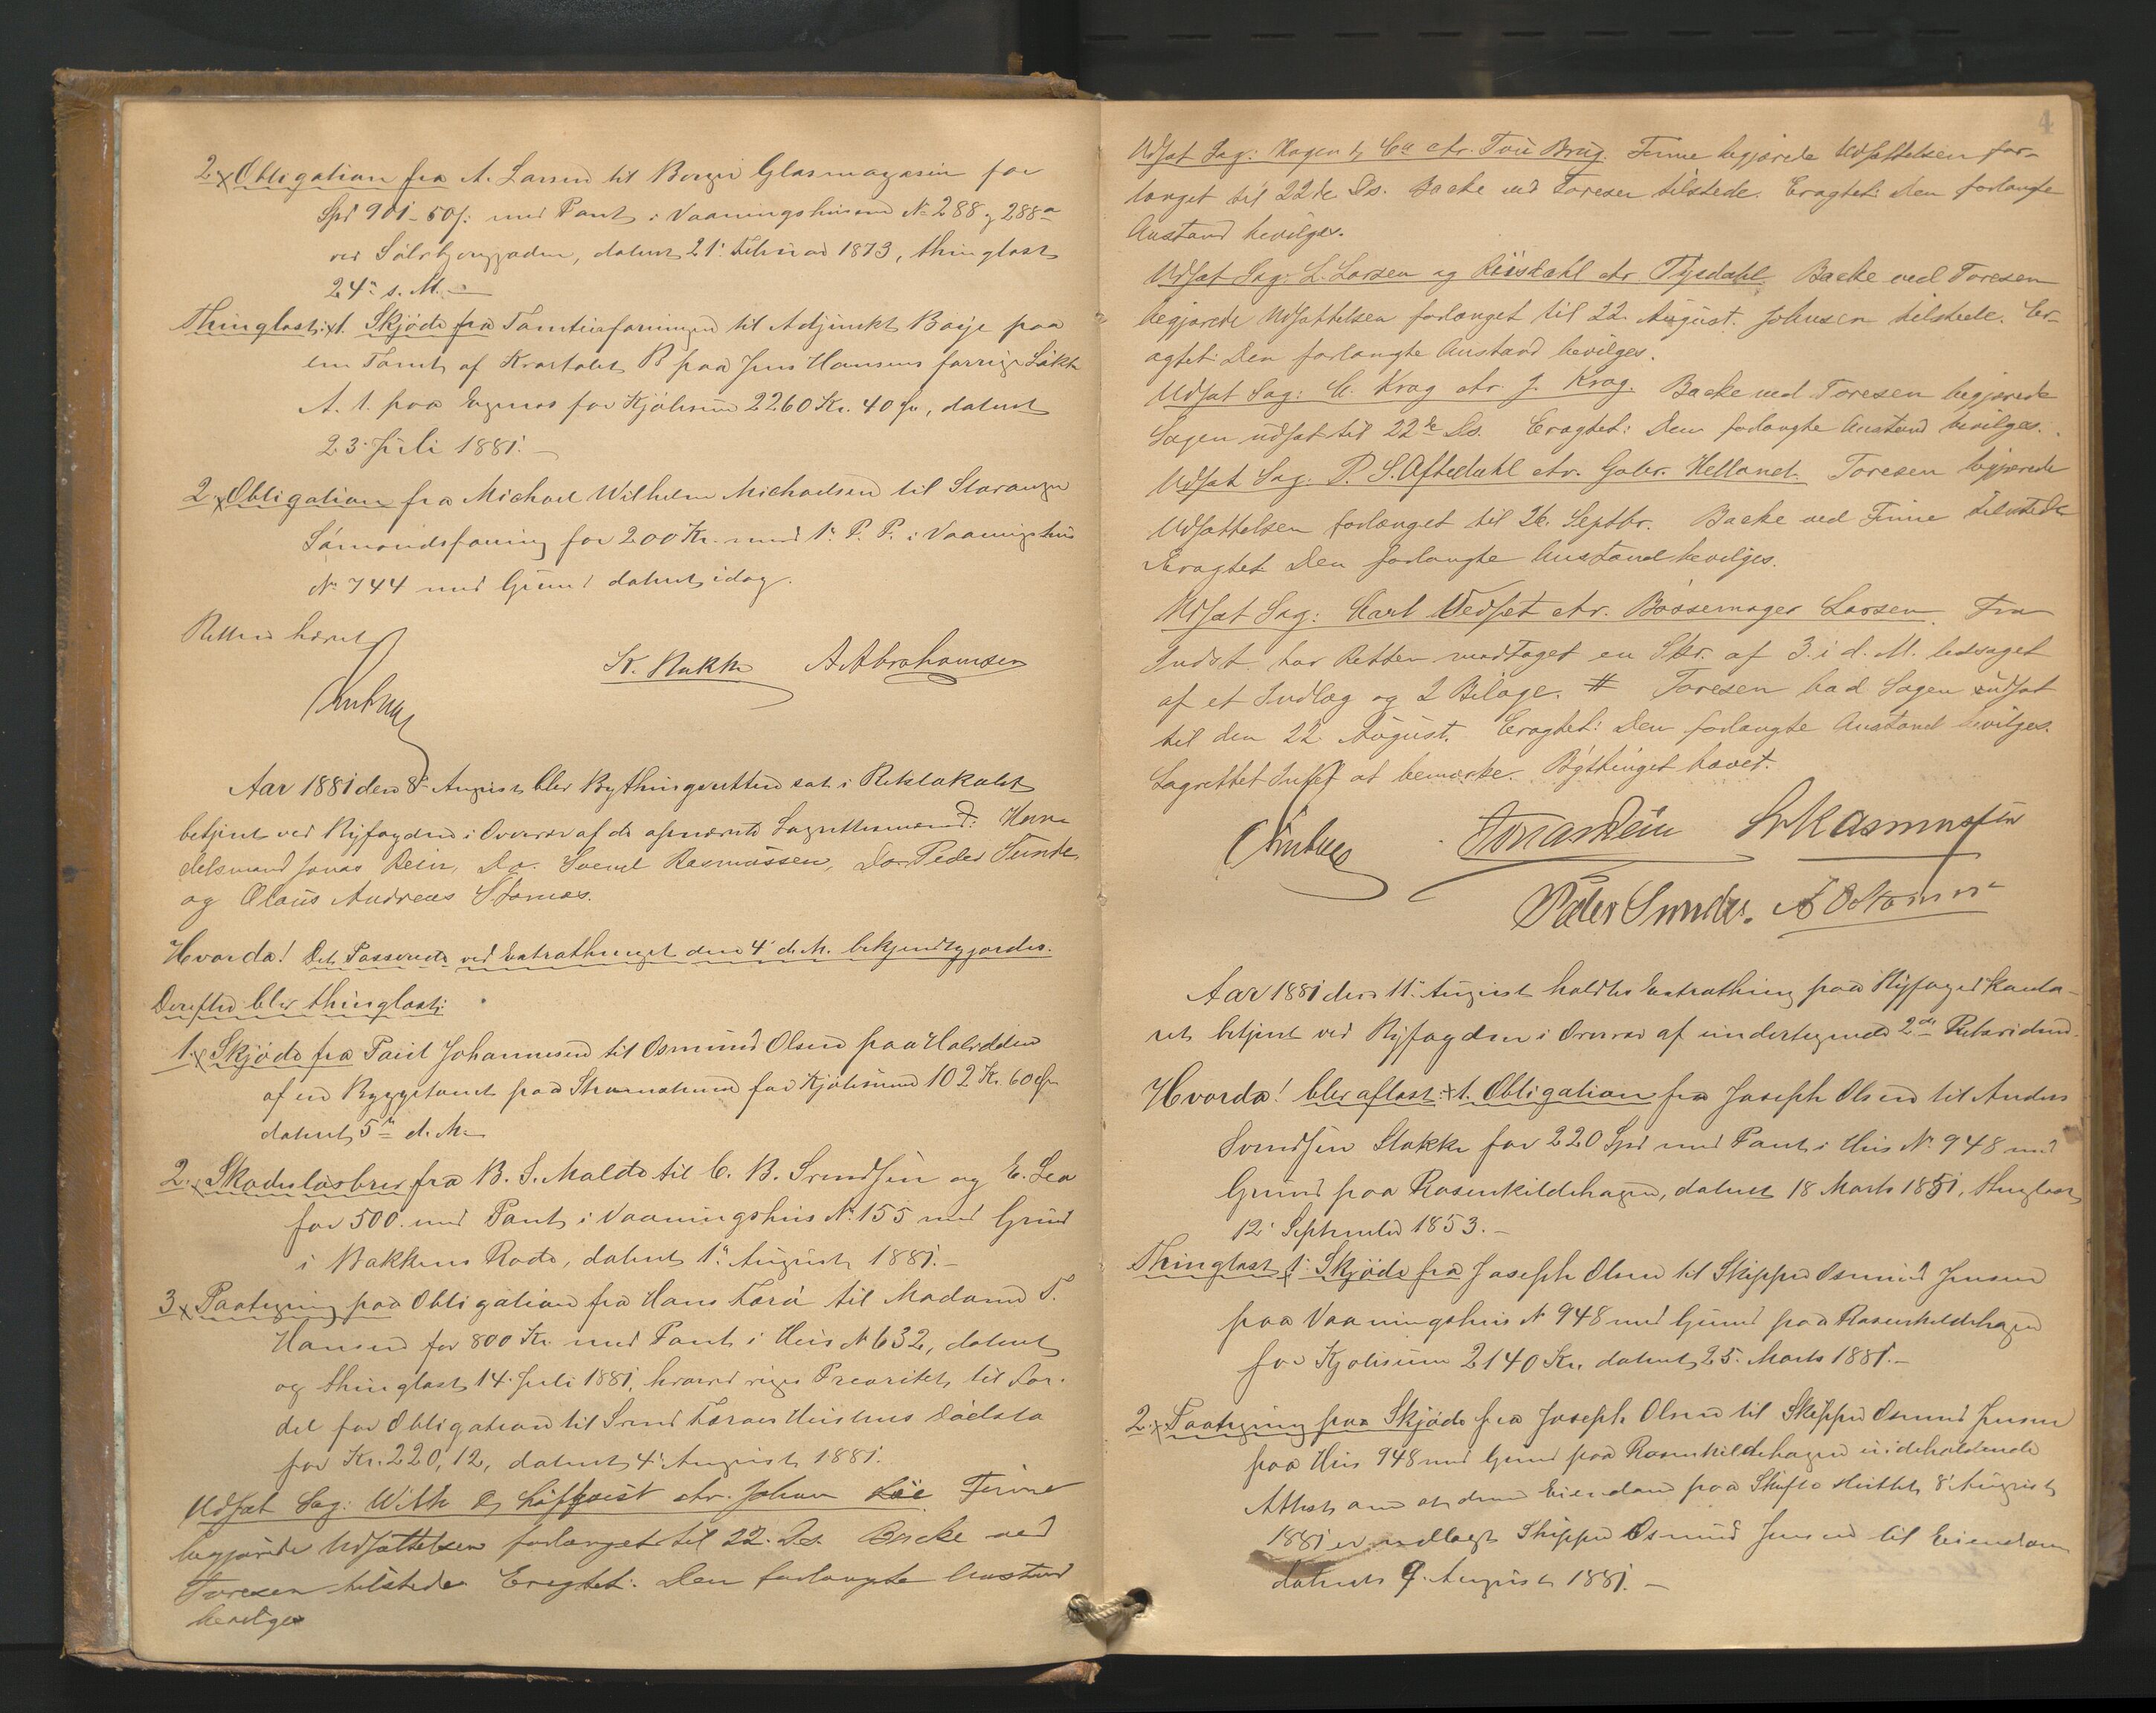 2. Obligation fra A. Larsen til Berger Glasmagasin for
Spd 901-50 s: med Pant i Vaaningshusene No 288 og 288a
ved Sølvbjerggaden, datert 21 Februar 1873, thinglæst
24de s. M.
Thinglæst: 1. Skjøde fra Tomteforeningen til Adjunkt Boije paa
en Tomt af Kvartalet B paa Jens Hansens forrige Løkke
A. 1. paa Egenes for Kjøbesum 2260 Kr. 40 Øre, datert
23 Juli 1881.
2. Obligation fra Michael Wilhelm Michaelsen til Stavanger
Sømandsforening for 200 Kr. med 1. P. P. i Vaaningshus
No 744 med Grund datert idag.
Retten hævet
K. Nakke A Abrahamsen
Aar 1881 den 8de August blev Bythingsretten sat i Retslokalet
betjent ved Byfogden i Overvær af de opnævnte Lagrettesmænd: Han-
delsmand Jonas Rein, Do. Svend Rasmussen, Do Peder Sunde
og Olaus Andreas Stornæs.
Hvorda! Det Passerede ved Extrathinget den 4de d. M. bekjendtgjordes.
Derefter blev thinglæst:
1. Skjøde fra Paul Johannesen til Osmund Olsen paa Halvdelen
af en Byggetomt paa for Kjøbesum 102 Kr. 60 Øre
datert 5te d. M.
2. Skadesløsbrev fra B. S. Malde til C. B. Svendsen og E. Lea
for 500. med Pant i Vaaningshus No 155 med Grund
i Bakkens Rode, datert 1. August 1881.
3. Paategning paa Obligation fra Hans Torø til Madame T.
Hansen for 800 Kr. med Pant i Hus No 632, datert
og thinglæst 14. Juli 1881, hvorved viges Prioritet til For-
del for Obligation til Svend
for Kr. 220,12, datert 4. August 1881.
Udsat Sag: With & Løfquist ctr. Johan Lie Finne
begjærede Udsættelsen forlænget til 22. Ds. Backe ved
Toresen tilstede Eragtet: Den forlangte Anstand
bevilges
4
Udsat Sag: Hagen & Co ctr. Tou Brug. Finne begjærede Udsættelsen for-
længet til 22de Ds. Backe ved Toresen tilstede. Eragtet: Den forlangte
Anstand bevilges.
Udsat Sag: L. Larsen og Riisdahl ctr. Tjedahl Backe ved Toresen
begjærede Udsættelsen forlænget til 22. August. Johnsen tilstede. Er-
agtet: Den forlangte Anstand bevilges.
Udsat Sag: C. Krag ctr. J. Krag. Backe ved Toresen begjærede
Sagen udsat til 22de Ds. Eragtet: Den forlangte Anstand bevilges.
Udsat Sag. P. S. Aftedahl ctr. Gabr. Helland. Toresen begjærede
Udsættelsen forlænget til 26. Septbr. Backe ved Finne tilstede
Eragtet Den forlangte Anstand bevilges.
Udsat Sag: Carl Vedset ctr. Bøssemager Larsen. Fra
Indst. har Retten modtaget en Skr. af 3. i d. M. ledsaget
af et Indlæg og 2 Bilage. # Toresen bad Sagen udsat
til den 22 August. Eragtet: Den forlangte Anstand bevilges.
Lagrettet Intet at bemærke. Bythinget hævet.
Jonas Rein S. Rasmussen
Peder Sunde. A O Stornæs
Aar 1881 den 11te August holdtes Extrathing paa Byfogedkonto-
ret betjent ved Byfogden i Overvær af undertegnede 2de Retsvidner.
Hvorda! blev aflæst: 1. Obligation fra Joseph Olsen til Anders
Svendsen Stokke for 220 Spd med Pant i Hus No 948 med
Grund paa Rosenkildehagen, datert 18 Marts 1851, thinglæst
12 September 1853.
Thinglæst 1. Skjøde fra Joseph Olsen til Skipper Osmund Jensen
paa Vaaningshus No 948 med Grund paa Rosenkildehagen
for Kjøbesum 2140 Kr. datert 25. Marts 1881.
2. Paategning paa Skjøde fra Joseph Olsen til Skipper Osmund Jensen
paa Hus 948 med Grund paa Rosenkildehagen indeholdende
Attest om at denne Eiendom paa Skifte sluttet 8 August
1881 er udlagt Skipper Osmund Jensen til Eiendom
datert 9. August 1881.